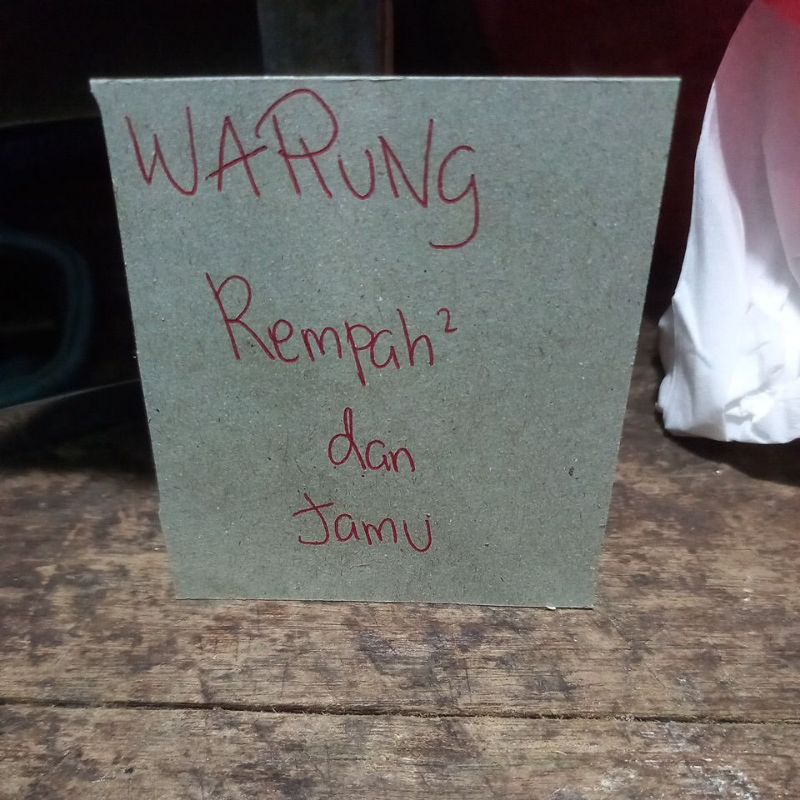 WARUNG
Rempah²
dan
Jamu